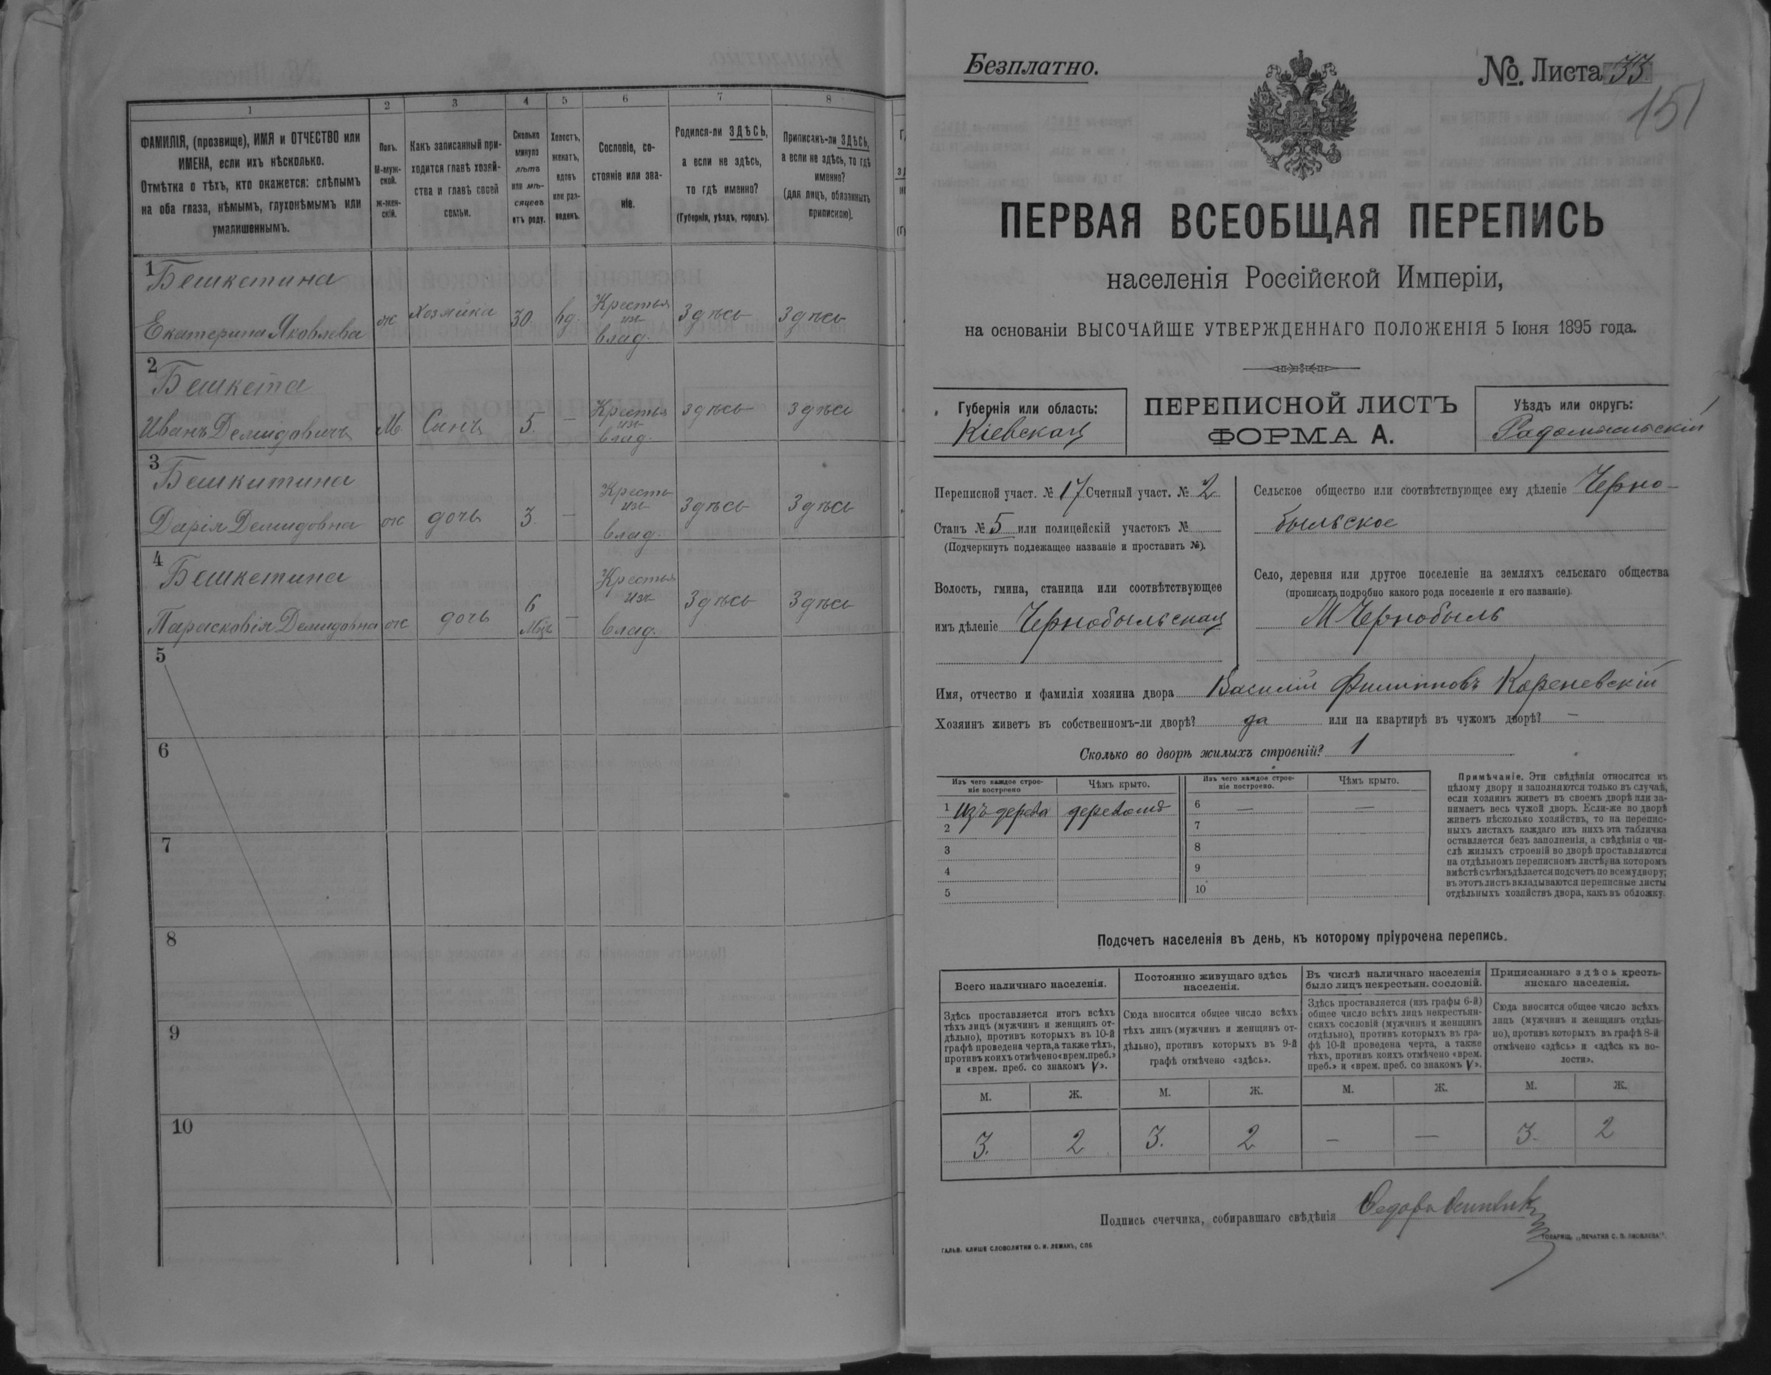 1
2
3
4
5
6
7
8
ФАМИЛІЯ, (прозвище), ИМЯ и ОТЧЕСТВО или
ИМЕНА, если ихъ нѣсколько.
Отмѣтка о тѣхъ, кто окажется: слѣпымъ
на оба глаза, нѣмымъ, глухонѣмымъ или
умалишеннымъ.
Полъ.
М-муж-
ской.
ж-жен-
скій.
Какъ записанный при-
ходится главѣ хозяй-
ства и главѣ своей
семьи.
Сколько
минуло
лѣтъ
или мѣ-
сяцевъ
отъ роду.
Холостъ,
женатъ,
вдовъ
или раз-
веденъ.
Сословіе, со-
стояніе или зва-
ніе.
Родился-ли ЗДѢСЬ,
а если не здѣсь,
то гдѣ именно?
(Губернія, уѣздъ, городъ).
Приписанъ-ли ЗДѢСЬ,
а если не здѣсь, то гдѣ
именно?
(для лицъ, обязанныхъ
припискою).
1
Бешкетина
Екатерина Яковлева
ж
Хозяйка
30.
вд.
Крестья
изъ
влад.
Здѣсь
Здѣсь
2
Бешкета
Иванъ Демидовичъ
М
Сынъ
5.
—
Крестья
изъ
влад.
Здѣсь
Здѣсь
3
Бешкитина
Дарія Демидовна
ж
дочь
3.
—
Кресть
изъ
влад.
Здѣсь
Здѣсь
4
Бешкетина
Парасковія Демидовна
ж
дочь
6
Мѣс
—
Крестья
изъ
влад.
Здѣсь
Здѣсь
5
6
7
8
9
10
Безплатно.
№. Листа 33
151
ПЕРВАЯ ВСЕОБЩАЯ ПЕРЕПИСЬ
населенія Россійской Имперіи,
на основаніи ВЫСОЧАЙШЕ УТВЕРЖДЕННАГО ПОЛОЖЕНІЯ 5 Іюня 1895 года.
Губернія или область:
Кіевская
ПЕРЕПИСНОЙ ЛИСТЪ
ФОРМА А.
Уѣздъ или округъ:
Радомысльскій
Переписной участ. № 17 Счетный участ. № 2
Станъ № 5 или полицейскій участокъ №
(Подчеркнуть подлежащее названіе и проставить №).
Волость, гмина, станица или соотвѣтствующее
имъ дѣленіе Чернобыльская
Сельское общество или соотвѣтствующее ему дѣленіе Черно-
быльское
Село, деревня или другое поселеніе на земляхъ сельскаго общества
(прописать подробно какого рода поселеніе и его названіе).
М Чернобыль
Имя, отчество и фамилія хозяина двора Василій Филипповъ Кореневскій
Хозяинъ живетъ въ собственномъ-ли дворѣ? да или на квартирѣ въ чужомъ дворѣ? —
Сколько во дворѣ жилыхъ строеній? 1
Изъ чего каждое строе-
ніе построено
Чѣмъ крыто.
Изъ чего каждое строе-
ніе построено.
Чѣмъ крыто.
1 Изъ дерева деревомъ
2
3
4
5
6 — —
7
8
9
10
Примѣчаніе. Эти свѣдѣнія относятся къ
цѣлому двору и заполняются только въ случаѣ,
если хозяинъ живетъ въ своемъ дворѣ или за-
нимаетъ весь чужой дворъ. Если-же во дворѣ
живетъ нѣсколько хозяйствъ, то на перепис-
ныхъ листахъ каждаго изъ нихъ эта табличка
оставляется безъ заполненія, а свѣдѣнія о чи-
слѣ жилыхъ строеній во дворѣ проставляются
на отдѣльномъ переписномъ листѣ, на которомъ
вмѣстѣ съ тѣмъ дѣлается подсчетъ по всему двору;
въ этотъ листъ вкладываются переписные листы
отдѣльныхъ хозяйствъ двора, какъ въ обложку.
Подсчетъ населенія въ день, къ которому пріурочена перепись.
Всего наличнаго населенія.
Постоянно живущаго здѣсь
населенія.
Въ числѣ наличнаго населенія
было лицъ некрестьян. сословій.
Приписаннаго здѣсь кресть-
янскаго населенія.
Здѣсь проставляется итогъ всѣхъ
тѣхъ лицъ (мужчинъ и женщинъ от-
дѣльно), противъ которыхъ въ 10-й
графѣ проведена черта, а также тѣхъ,
противъ коихъ отмѣчено «врем. преб.»
и «врем. преб. со знакомъ V».
Сюда вносится общее число всѣхъ
тѣхъ лицъ (мужчинъ и женщинъ от-
дѣльно), противъ которыхъ въ 9-й
графѣ отмѣчено «здѣсь».
Здѣсь проставляется (изъ графы 6-й)
общее число всѣхъ лицъ некрестьян-
скихъ сословій (мужчинъ и женщинъ
отдѣльно), противъ которыхъ въ гра-
фѣ 10-й проведена черта, а также
тѣхъ, противъ коихъ отмѣчено «врем.
преб.» и «врем. преб. со знакомъ V».
Сюда вносится общее число всѣхъ
лицъ (мужчинъ и женщинъ отдѣль-
но), противъ которыхъ въ графѣ 8-й
отмѣчено «здѣсь» и «здѣсь въ во-
лости».
М. Ж. М. Ж. М. Ж. М. Ж.
3. 2 3. 2 — — 3. 2
Подпись счетчика, собиравшаго свѣдѣнія
ГАЛЬВ. КЛИШЕ СЛОВОЛИТНИ О. И. ЛЕМАНЪ, СПБ
ТОВАРИЩ. „ПЕЧАТНЯ С. П. ЯКОВЛЕВА“.